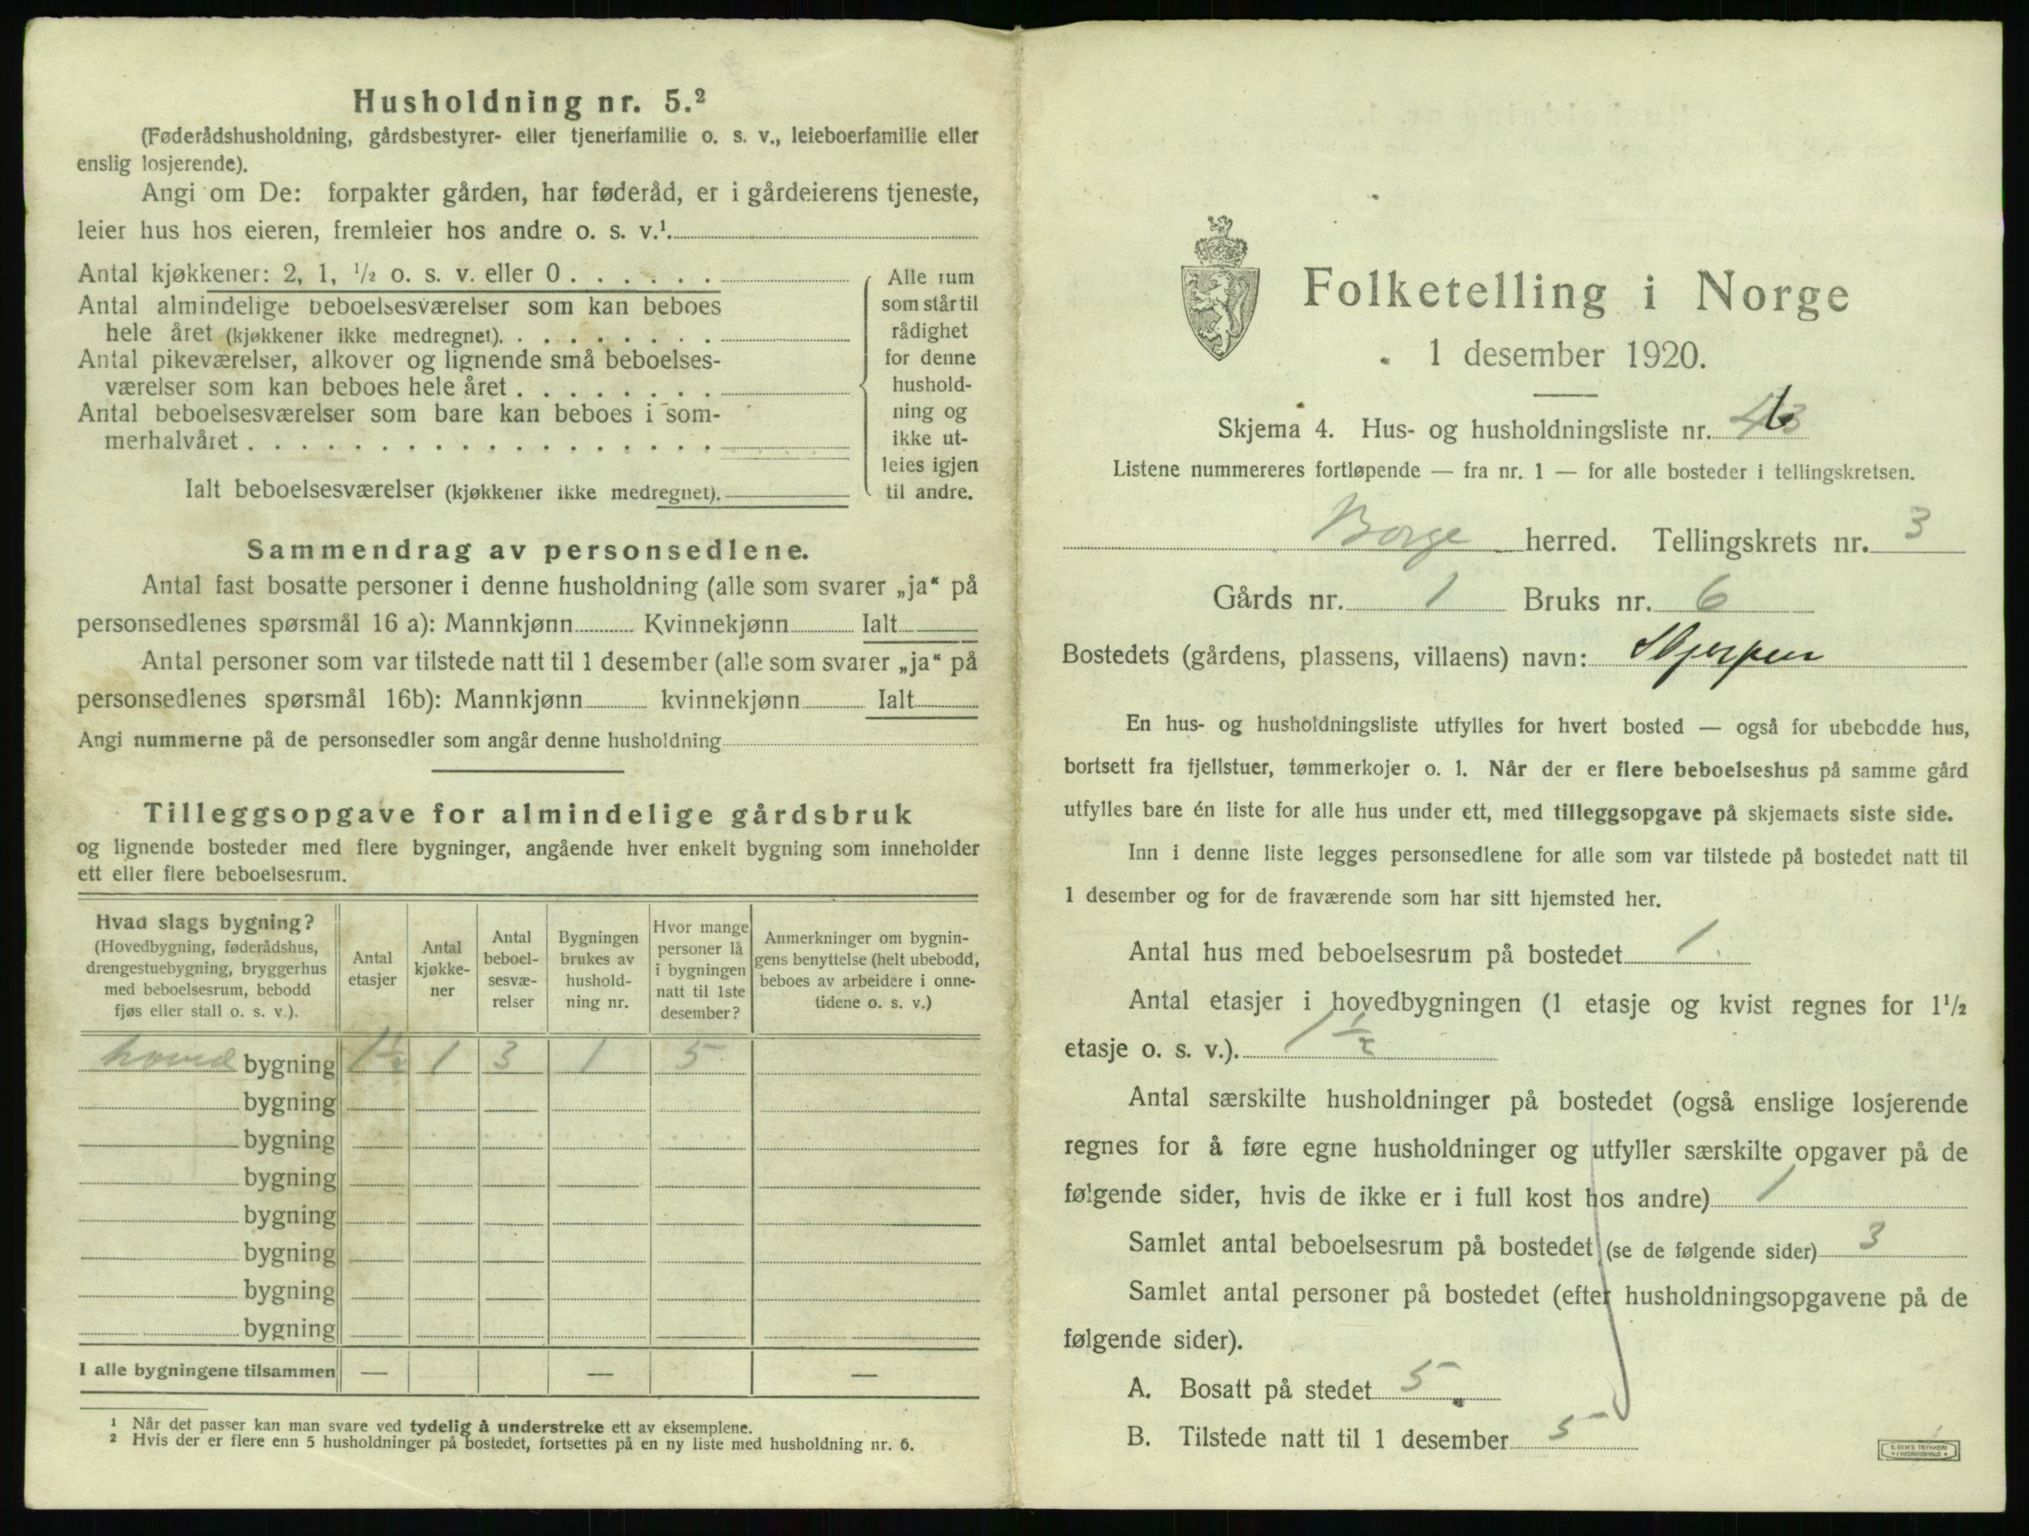 Husholdning nr. 5.²
(Føderådshusholdning, gårdsbestyrer- eller tjenerfamilie o. s. v., leieboerfamilie eller
enslig losjerende).
Angi om De: forpakter gården, har føderåd, er i gårdeierens tjeneste,
leier hus hos eieren, fremleier hos andre o. s. v.¹.
Antal kjøkkener: 2, 1, ½ o. s. v. eller 0 . . . . . .
Antal almindelige beboelsesværelser som kan beboes
hele året (kjøkkener ikke medregnet). . . . . . . . .
Antal pikeværelser, alkover og lignende små beboelses-
værelser som kan beboes hele året . . . . . . . .
Antal beboelsesværelser som bare kan beboes i som-
merhalvåret . . . . . . . . . . . . . . . . . .
Ialt beboelsesværelser (kjøkkener ikke medregnet).
Alle rum
som står til
rådighet
for denne
hushold-
ning og
ikke ut-
leies igjen
til andre.
Sammendrag av personsedlene.
Antal fast bosatte personer i denne husholdning (alle som svarer „ja“ på
personsedlenes spørsmål 16 a): Mannkjønn Kvinnekjønn Ialt
Antal personer som var tilstede natt til 1 desember (alle som svarer „ja“ på
personsedlenes spørsmål 16b): Mannkjønn kvinnekjønn Ialt
Angi nummerne på de personsedler som angår denne husholdning
Tilleggsopgave for almindelige gårdsbruk
og lignende bosteder med flere bygninger, angående hver enkelt bygning som inneholder
ett eller flere beboelsesrum.
Hvad slags bygning?
(Hovedbygning, føderådshus,
drengestuebygning, bryggerhus
med beboelsesrum, bebodd
fjøs eller stall o. s. v.).
Antal
etasjer
Antal
kjøkke-
ner
Antal
beboel-
sesvæ-
relser
Bygningen
brukes av
hushold-
ning nr.
Hvor mange
personer lå
i bygningen
natt til 1ste
desember?
Anmerkninger om bygnin-
gens benyttelse (helt ubebodd,
beboes av arbeidere i onne-
tidene o. s. v.)
hoved bygning 1½ 1 3 1 5
bygning
bygning
bygning
bygning
bygning
bygning
bygning
I alle bygningene tilsammen — — —
¹ Når det passer kan man svare ved tydelig å understreke ett av eksemplene.
² Hvis der er flere enn 5 husholdninger på bostedet, fortsettes på en ny liste med husholdning nr. 6.
Folketelling i Norge
1 desember 1920.
Skjema 4. Hus- og husholdningsliste nr.
Listene nummereres fortløpende — fra nr. 1 — for alle bosteder i tellingskretsen.
Borge herred. Tellingskrets nr. 3
Gårds nr. 1 Bruks nr. 6
Bostedets (gårdens, plassens, villaens) navn: Skjerpen
En hus- og husholdningsliste utfylles for hvert bosted — også for ubebodde hus,
bortsett fra fjellstuer, tømmerkojer o. l. Når der er flere beboelseshus på samme gård
utfylles bare én liste for alle hus under ett, med tilleggsopgave på skjemaets siste side.
Inn i denne liste legges personsedlene for alle som var tilstede på bostedet natt til
1 desember og for de fraværende som har sitt hjemsted her.
Antal hus med beboelsesrum på bostedet 1.
Antal etasjer i hovedbygningen (1 etasje og kvist regnes for 1½
etasje o. s. v.). 1½
Antal særskilte husholdninger på bostedet (også enslige losjerende
regnes for å føre egne husholdninger og utfyller særskilte opgaver på de
følgende sider, hvis de ikke er i full kost hos andre) 1
Samlet antal beboelsesrum på bostedet (se de følgende sider) 3
Samlet antal personer på bostedet (efter husholdningsopgavene på de
følgende sider).
A. Bosatt på stedet 5
B. Tilstede natt til 1 desember 5